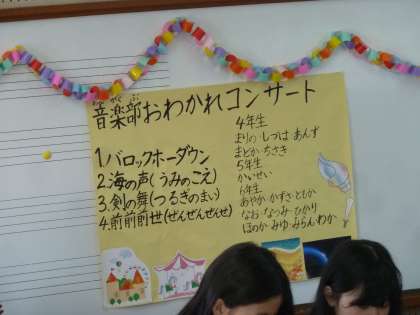 おんがくぶ
音楽部おわかれコンサート
1 バロックホーダウン
2.海の声(うみのこえ)
3.剣の舞(つるぎのまい)
4.前前前世(ぜんぜんぜんせ)
4年生
まりの・しづは・あんず
まどか・ちさき
5年生
かいせい
6年生
あやか・かずさ・ともか
なお・なつみ・ひかり
ほのか・みゆ・みらん・わか